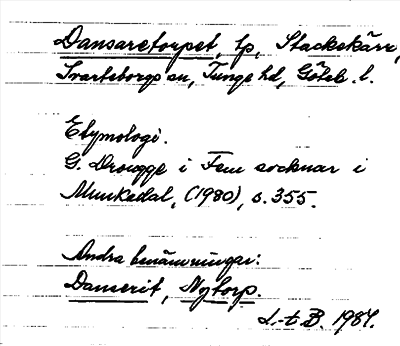 Dansaretorpet, tp, Stackekärr,
Svarteborgs sn, Tunge hd, Göteb. l.
Etymologi.
G. Drougge i Fem socknar i
Munkedal, (1980), s. 355.
Andra benämningar:
Danserit, Nytorp.
L-t B. 1984.